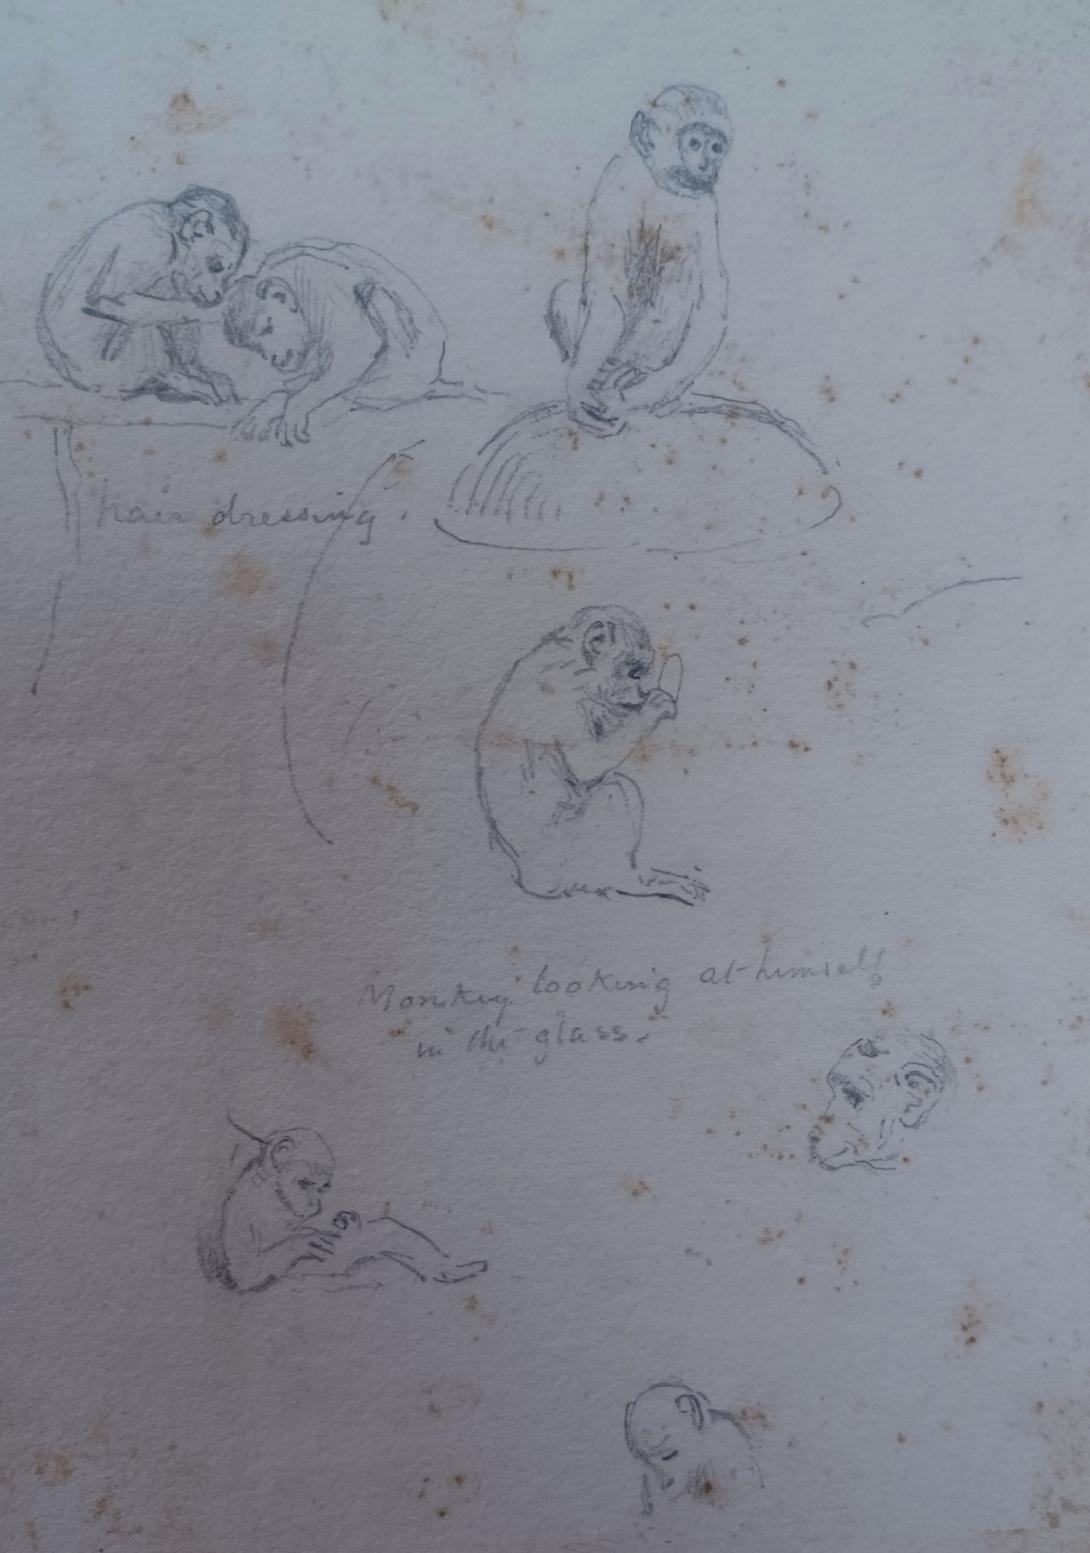 hair dressing.
Monkey looking at himself
in the glass.